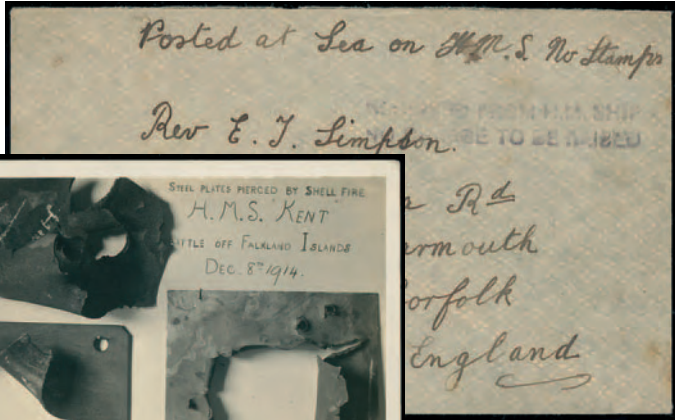 Posted at Sea on H.M.S. No Stamps
FROM H.M. SHIP
Rev E. J. Simpson.
NO CHARGE TO BE RAISED
Rd
armouth
orfolk
England
STEEL PLATES PIERCED BY SHELL FIRE
H.M.S. "KENT"
ATTLE OFF FALKLAND ISLANDS
DEC. 8TH 1914.